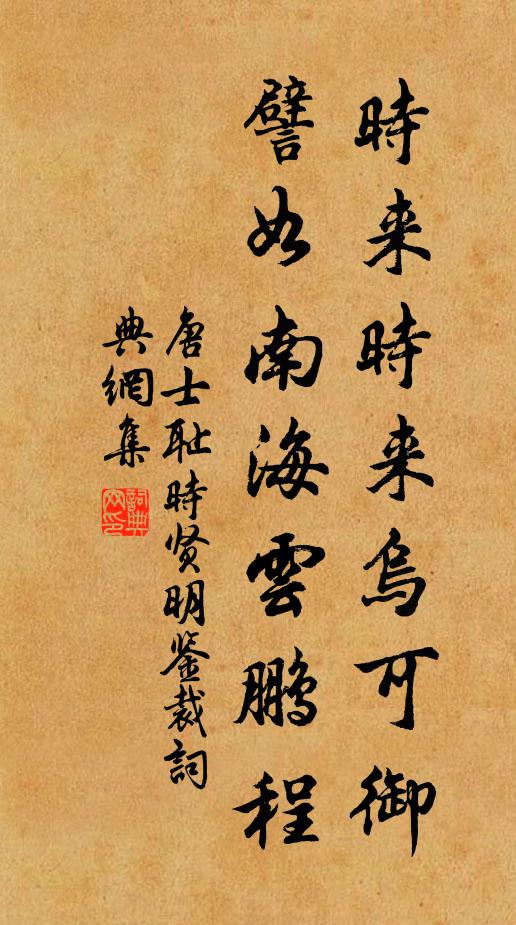 時来時来烏可御
譬如南海雲鵬程
唐士耻時贤明鉴裁詞
典網集
詞典网印